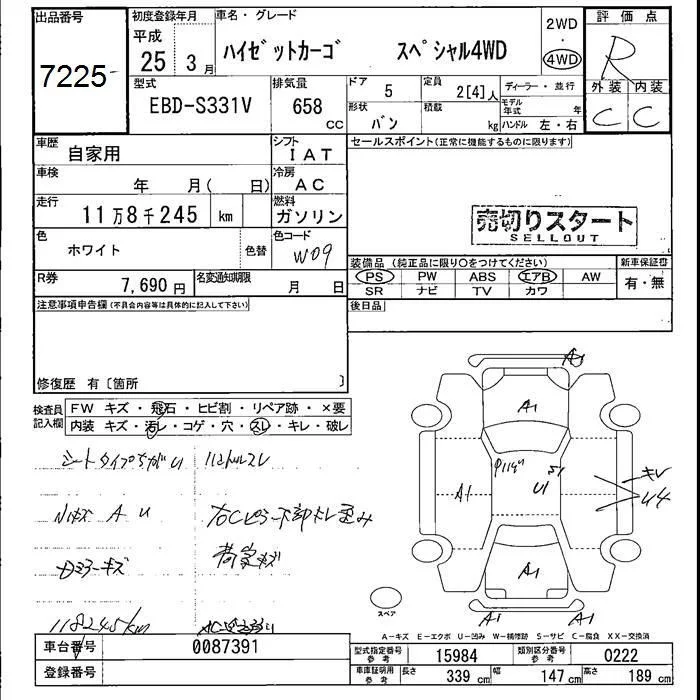 出品番号
7225
初度登録年月
平成
25 3月
車名・グレード
ハイゼットカーゴ スペシャル4WD
2WD
・
4WD
評価点
R
外装 内装
C C
型式
EBD-S331V
排気量
658 CC
ドア 5
定員 2[4]人
形状 バン
積載 kg
ディーラー・並行
モデル年式 年
ハンドル 左・右
車歴 自家用
シフト IAT
車検 年 月( 日)
冷房 AC
走行 11万8千245 km
燃料 ガソリン
色 ホワイト 色替
色コード W09
R券 7,690円
名変通知期限 月 日
セールスポイント(正常に機能するものに限ります)
売切りスタート
SELLOUT
装備品 (純正品に限り○をつけてください)
新車保証書
PS PW ABS エアB AW
SR ナビ TV カワ
有・無
後日品
注意事項申告欄(不具合内容等は具体的に記入して下さい)
修復歴 有〔箇所 〕
検査員記入欄
FW キズ・飛石・ヒビ割・リペア跡・×要
内装 キズ・汚レ・コゲ・穴・スレ・キレ・破レ
シートタイプちがい ハンドルスレ
A U 右Cピラー下部 歪み
ミラーキズ 荷室キズ
118245km
A1
A1
A1
U1
S1
キレ
U4
A1
A1 A1
スペア
A-キズ E-エクボ U-凹み W-補修跡 S-サビ C-腐食 XX-交換済
車台番号 0087391
登録番号
型式指定番号 参考 15984
類別区分番号 参考 0222
車庫証明用 参考 長さ 339 cm 幅 147 cm 高さ 189 cm